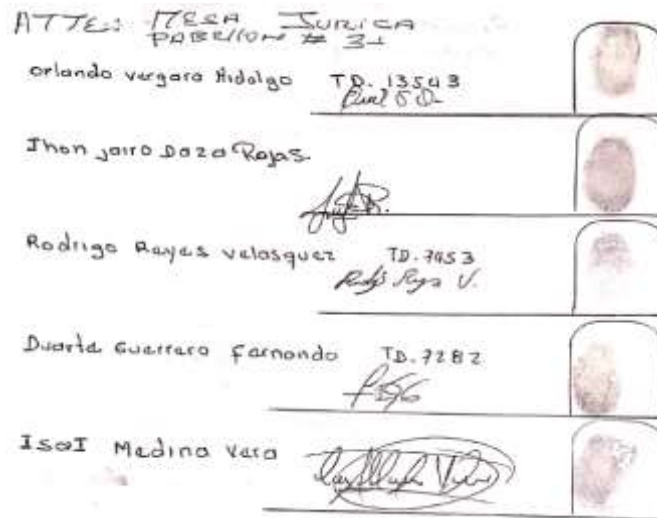 ATTE: MESA JURICA
PABELLON # 31
Orlando vergara Hidalgo TD. 13543
Jhon jairo Daza Rojas.
Rodrigo Reyes velasquez TD. 7453
Rodrigo Reyes V.
Duarte Guerrero fernando TD. 7282
IsaI Medina Vera